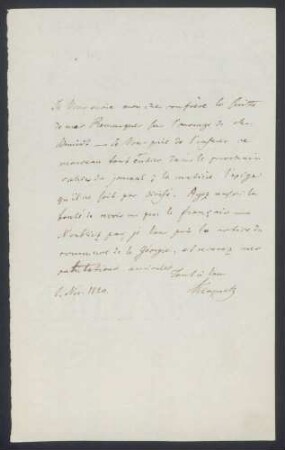 Je vous envoie mon cher confrère la suite
de mes Remarques sur l'ouvrage de Mr
Schmidt — Je vous prie de l'insérer ce
morceau tout entier dans le prochain
cahier du journal; la matière l'exige
qu'il ne soit pas divisé. Ayez aussi la
bonté de revoir un peu le français —
N'oubliez pas je vous prie la notice
de la Géorgie, et recevez mes
salutations amicales
Tout à vous
6. Nov. 1824.
Klaproth